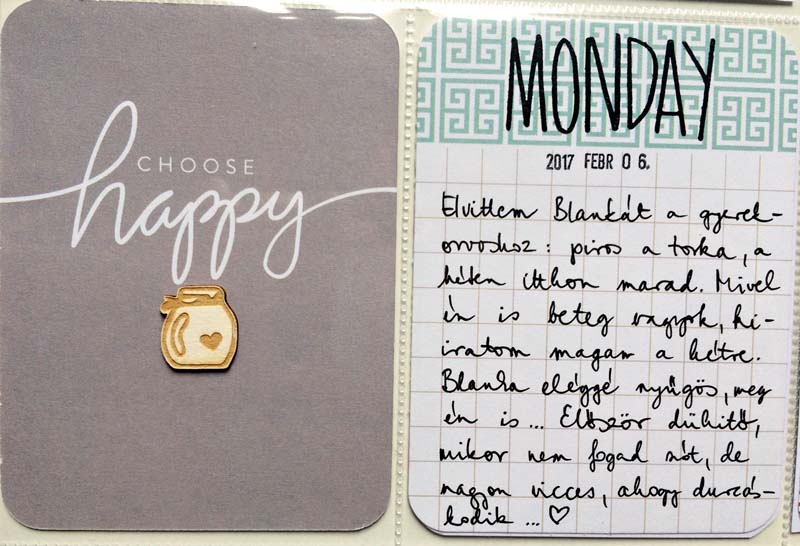 CHOOSE
happy
MONDAY
2017 FEBR 0 6.
Elvittem Blankát a gyerek-
orvoshoz: piros a torka, a
héten itthon marad. Mivel
én is beteg vagyok, ki-
iratom magam a hétre.
Blanka eléggé nyűgös, meg
én is... Először dühítő,
mikor nem fogad szót, de
nagyon vicces, ahogy durcás-
kodik... ♡